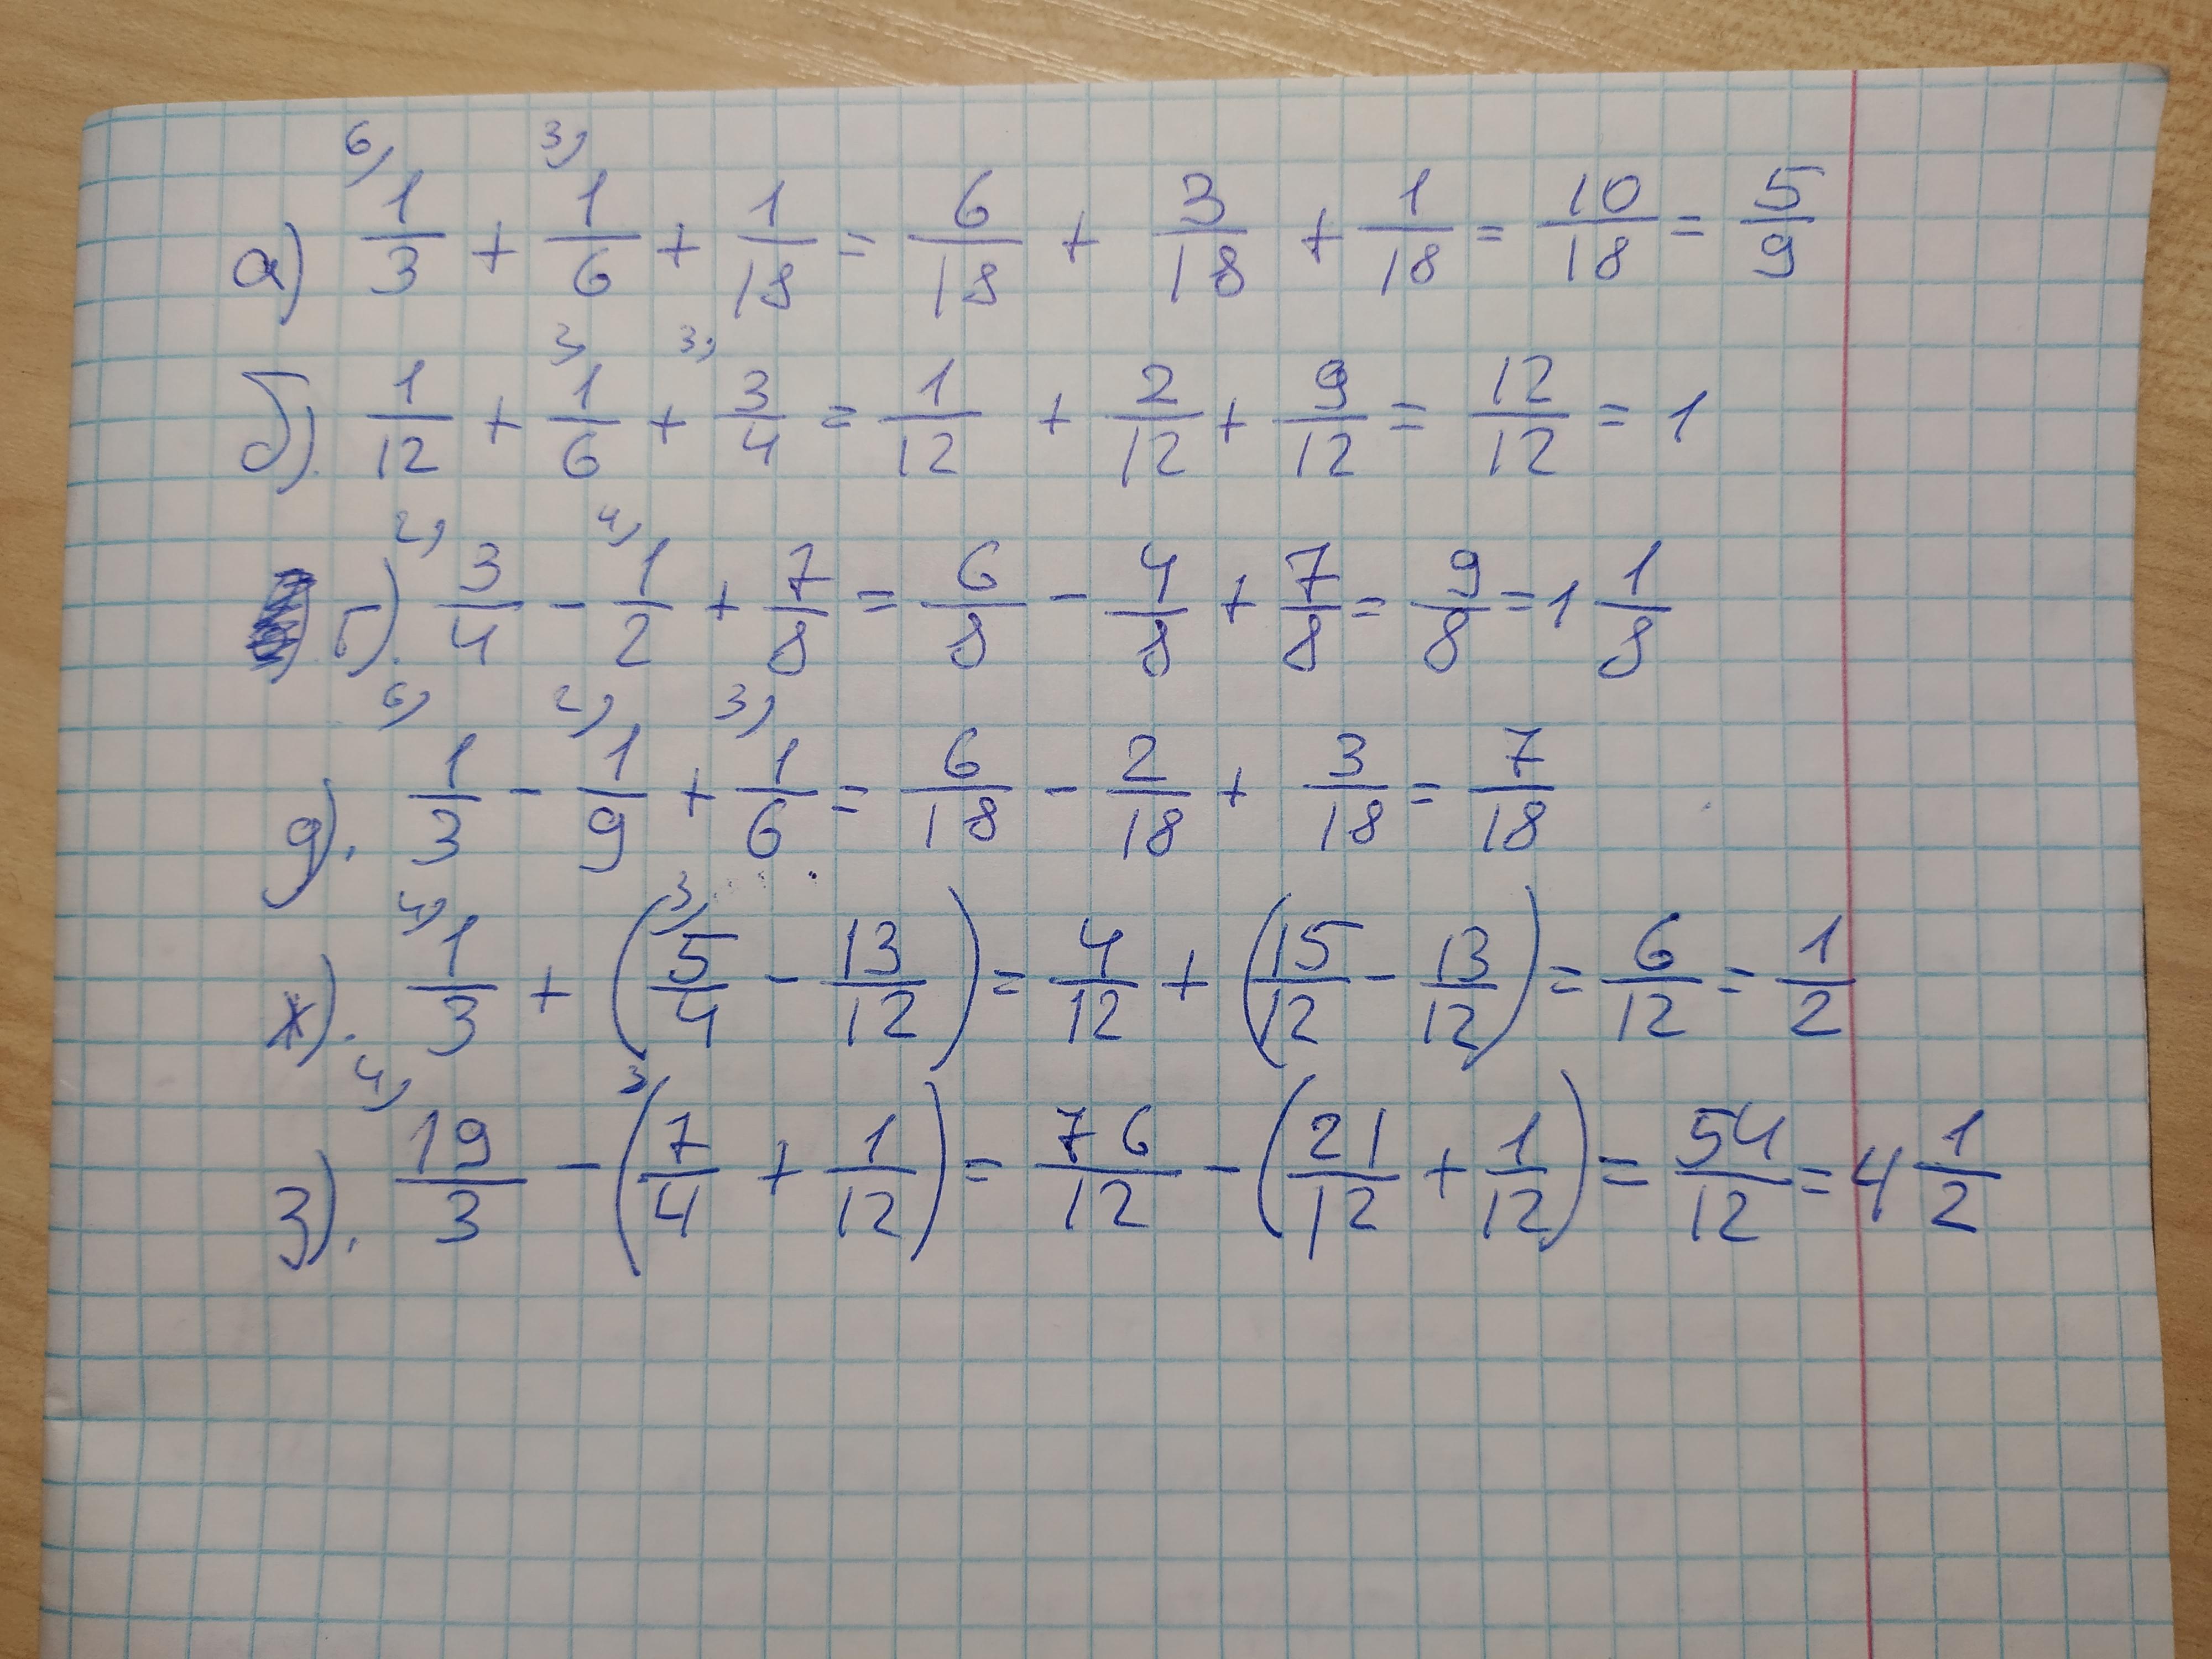 6) 3)
а) 1/3 + 1/6 + 1/18 = 6/18 + 3/18 + 1/18 = 10/18 = 5/9
3) 3)
б). 1/12 + 1/6 + 3/4 = 1/12 + 2/12 + 9/12 = 12/12 = 1
2) 4)
г). 3/4 - 1/2 + 7/8 = 6/8 - 4/8 + 7/8 = 9/8 = 1 1/8
6) 2) 3)
д). 1/3 - 1/9 + 1/6 = 6/18 - 2/18 + 3/18 = 7/18
4) 3)
ж). 1/3 + (5/4 - 13/12) = 4/12 + (15/12 - 13/12) = 6/12 = 1/2
4) 3)
з). 19/3 - (7/4 + 1/12) = 76/12 - (21/12 + 1/12) = 54/12 = 4 1/2